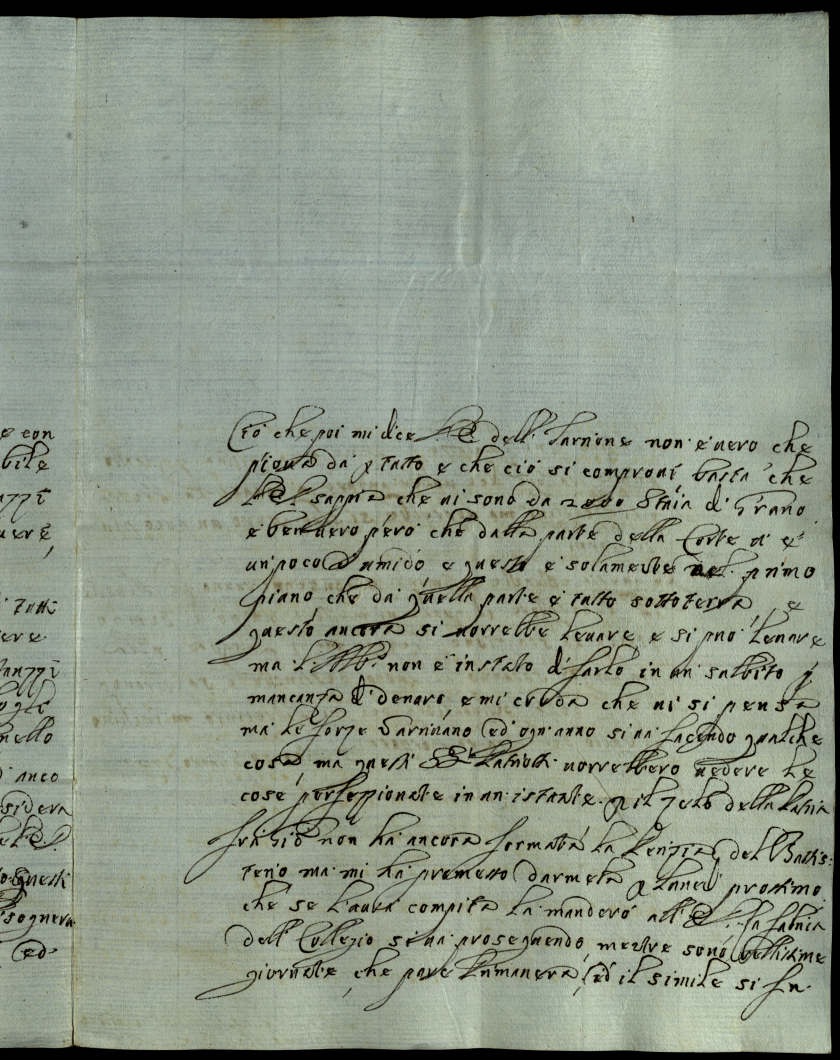 e con
bile
uere
Tutti
iere
stanzzi
nello
d' anco
sidera
questi
isognera
ed
Ciò che poi mi dice dell' Jarnone non è uero che
pioua da p tutto e che ciò si comproui basta che
sappia che ui sono da 2000 Staia di Grano
è ben uero però che dalla parte della Corte ui è
un poco d' umido e questo è solamente nel primo
piano che da quella parte è tutto sottoterra, e
questo ancora si uorrebbe leuare e si può leuare
ma non è in stato di farlo in un subbito p
mancanza di denaro, e mi creda che ui si pensa
ma le forze ed' ogn' anno si ua facendo qualche
cosa ma questi uorrebbero uedere le
cose perfezzionate in un istante p il zelo della Patria
non ha ancora formata la del Battis:
terio ma mi ha promesso darmela p Lunedì prossimo
che se l' aurà compita la manderò all' la fabrica
dell Collegio si ua proseguendo, mentre sono bellissime
giornate, che pare Primauera, ed il simile si fa